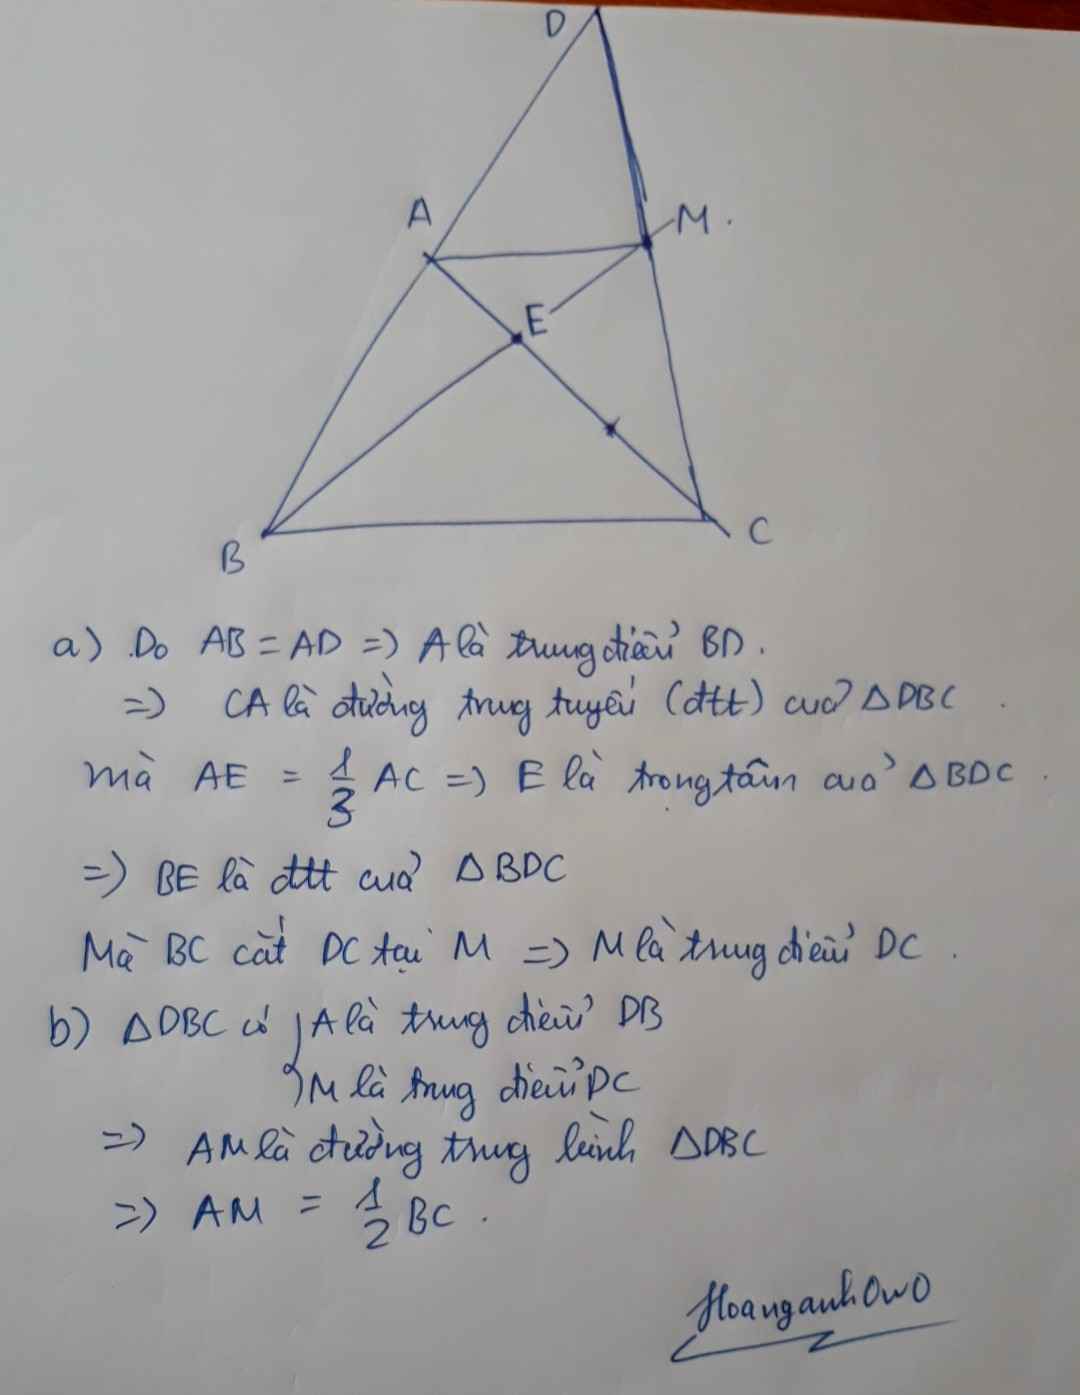 D
A
M.
E
B
C
a) Do AB = AD => A là trung điểm BD.
=> CA là đường trung tuyến (đtt) của △DBC.
mà AE = 1/3 AC => E là trọng tâm của △BDC.
=> BE là đtt của △BDC
Mà BC cắt DC tại M => M là trung điểm DC.
b) △DBC có { A là trung điểm DB
M là trung điểm DC
=> AM là đường trung bình △DBC
=> AM = 1/2 BC.
HoanganhOwO